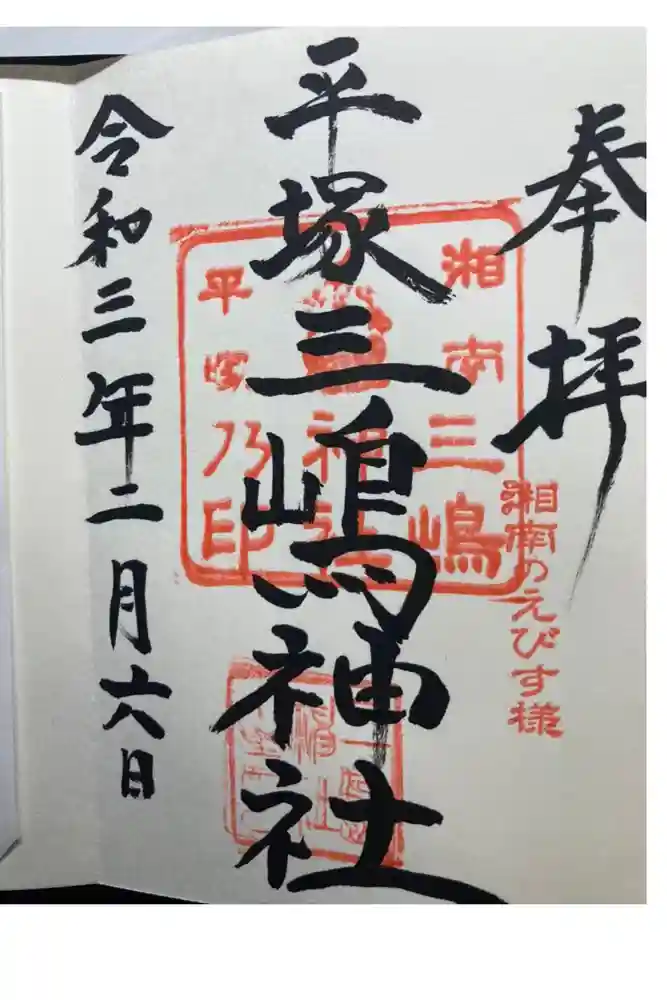 奉拝
湘南のえびす様
平塚三嶋神社
湘南三嶋
神社
平塚乃印
令和三年二月六日